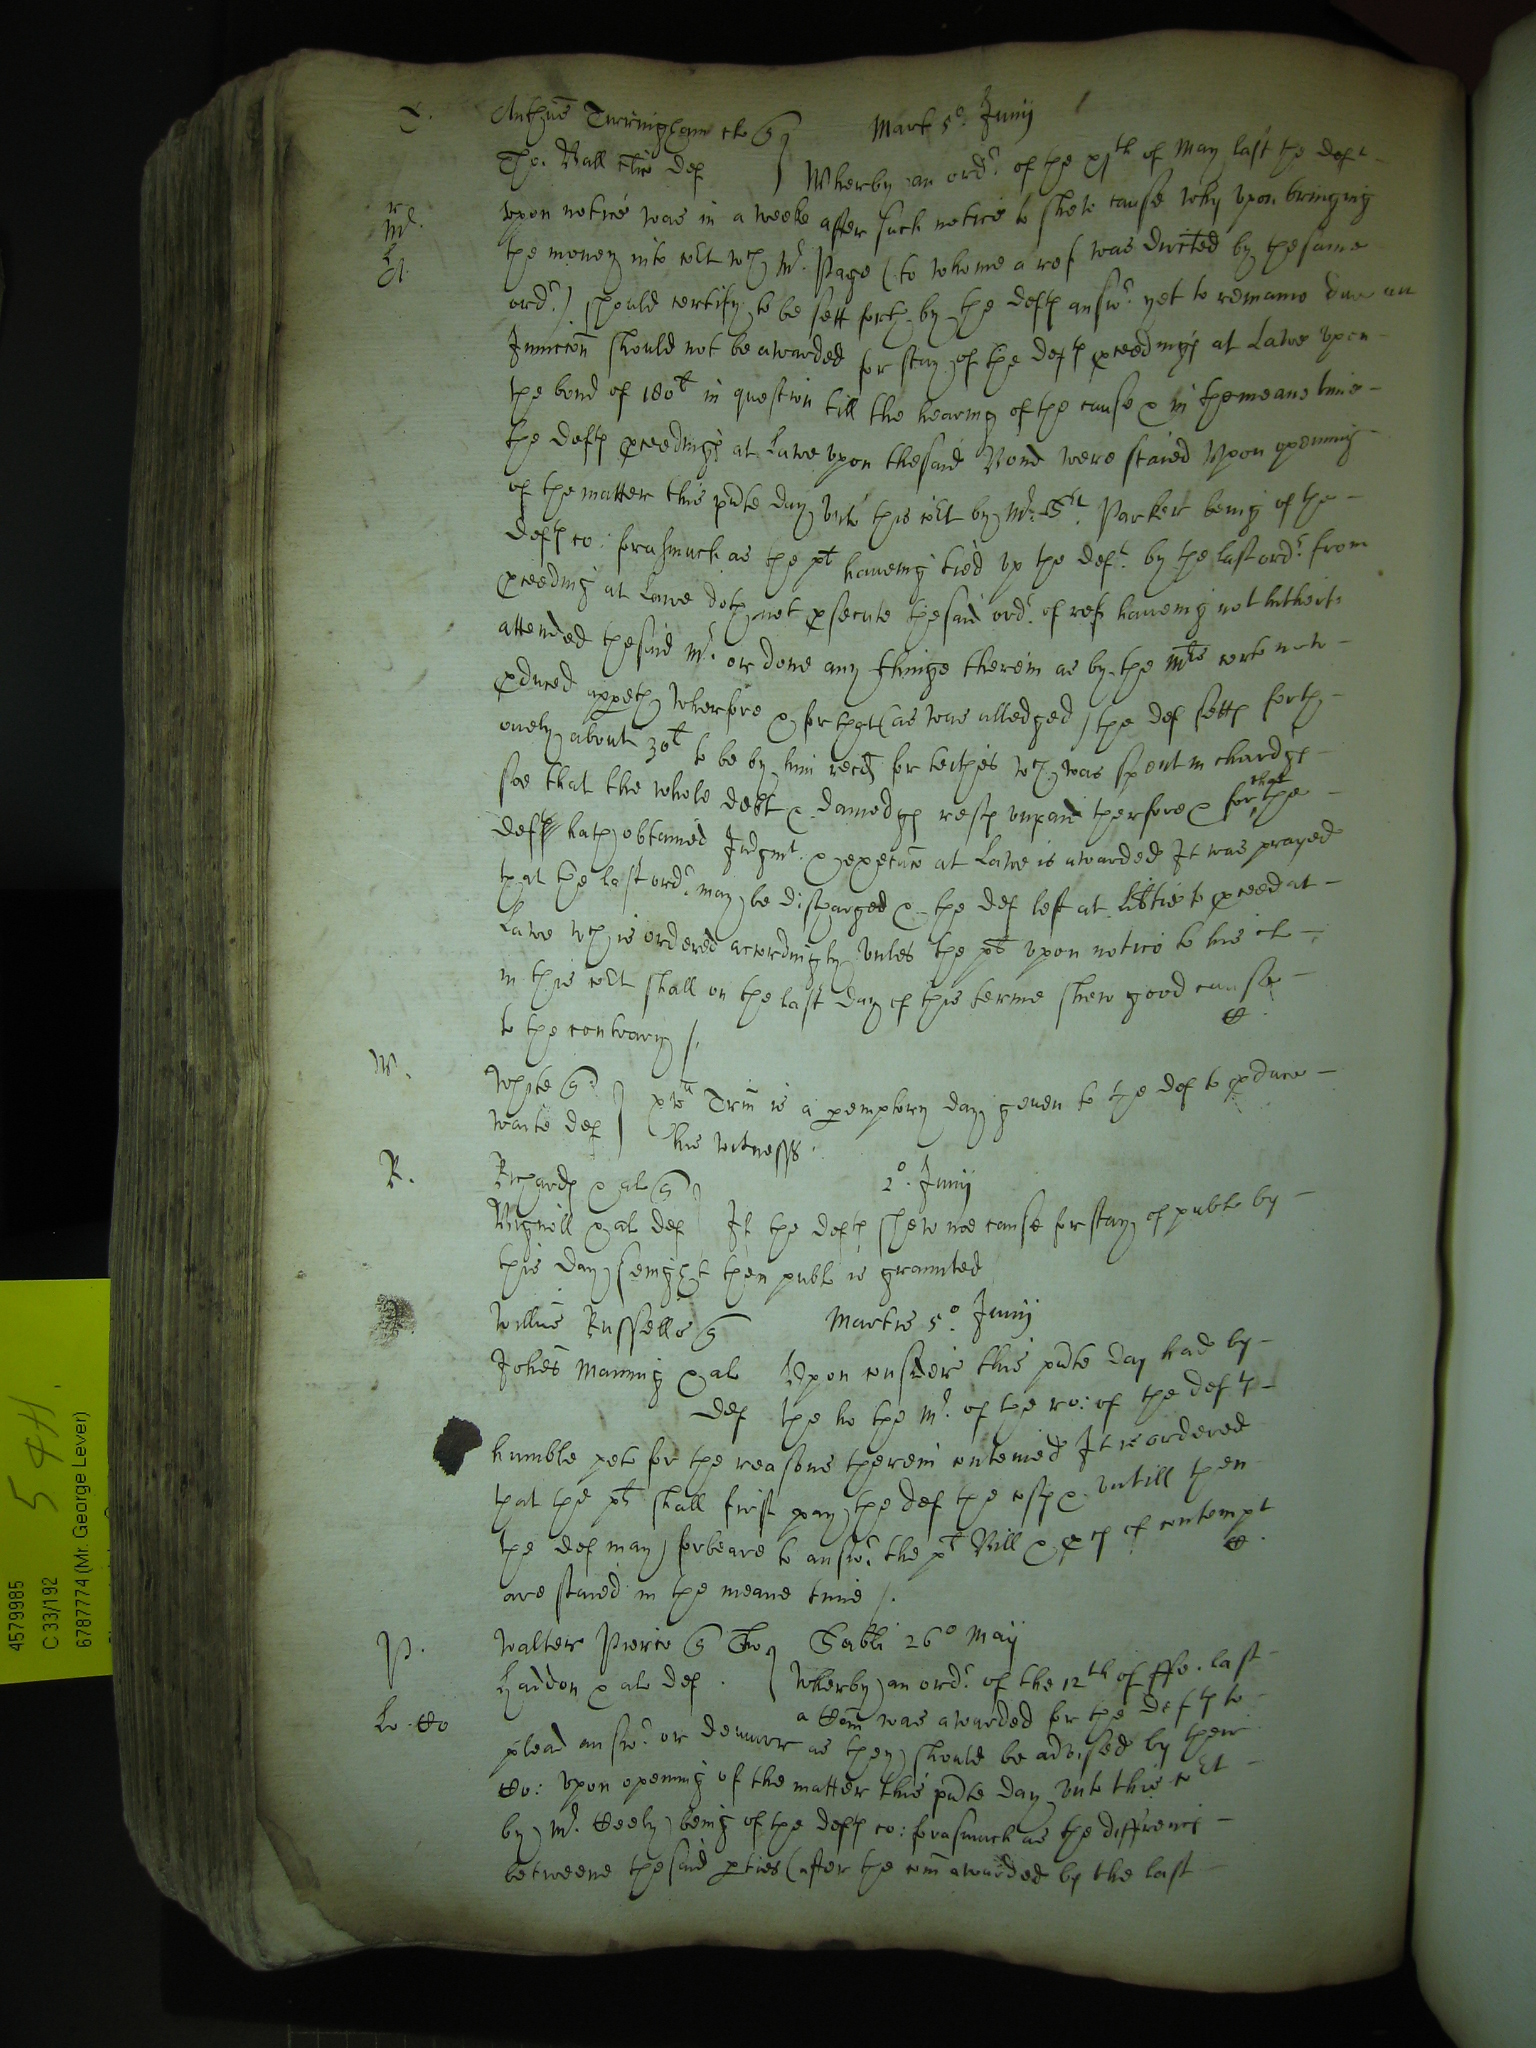 T. Anthus Tirringham cle q Mart 5o. Junij
Tho. Ball cler def Wherby an ordr of the xjth of May last the deft
upon notice was in a weeke after such notice to shew cause why upon bringing
Mr.
the money into cort wch Mr. Page (to whome a ref was dirted by the same
ordr.) should certify to be sett forth by the defts answr. yet to remaine due an
Iniuncion should not be awarded for stay of the defts pceedings at Lawe upon
the bond of 180l in question till the hearing of the cause & in the meane time
the defts pceedings at Lawe upon thesaid Bond were staied Upon opening
of the matter this pnte day unto this cort by Mr. St. Parker being of the
defts co: forasmuch as the pl haueing tied up the deft. by the last ordr. from
pceeding at Lawe doth not psecute thesaid ordr. of ref haueing not hitherto
attended thesaid Mr. or done any thinge therein as by the Mrs certe now
pduced appeth Wherfore & for that (as was alledged) the def setts forth
onely about 30l to be by him recd for teithes wch was spent in chardgs
soe that the whole debt & damadgs rests unpaid therfore & for that the
def hath obtained Judgmt. & execucon at Lawe is awarded It was prayed
that the last ordr. may be discharged & the def left at libtie to pceed at
Lawe wch is ordered accordingly unles the pl upon notice to his cl
in this cort shall on the last day of this terme shew good cause
to the contrary /.
W. Whyte q
Waite def xvs Trin is a pemptory day geuen to the def to pduce
his witnesses.
R. Richards & al q 2o. Junij
Bignell & al def If the defts shew noe cause for stay of publ by
this day senight then publ is graunted
R. Willus Russell q Martis 5o. Junij
Johes Manning & al Upon consider this pnte day had by
def the ho the Mr. of the ro: of the defts
humble peto for the reasons therein conteined It is ordered
that the pl shall first pay the def the costs & untill then
the def may forbeare to answr. the pl Bill & pces of contempt
are staied in the meane time /.
P. Walter Pierce q Tho Sabbi 26o May
Haidon & al def. Wherby an ordr. of the 12th of ffe. last
Lo. Co a Com was awarded for the defts to
plead answr. or demurr as they should be advised by their
Co: upon opening of the matter this pnte day unto this cort
by Mr. Ceely being of the defts co: forasmuch as the differenc
betweene thesaid pties (after the com awarded by the last
4579985
C 33/192
6787774 (Mr. George Lever)